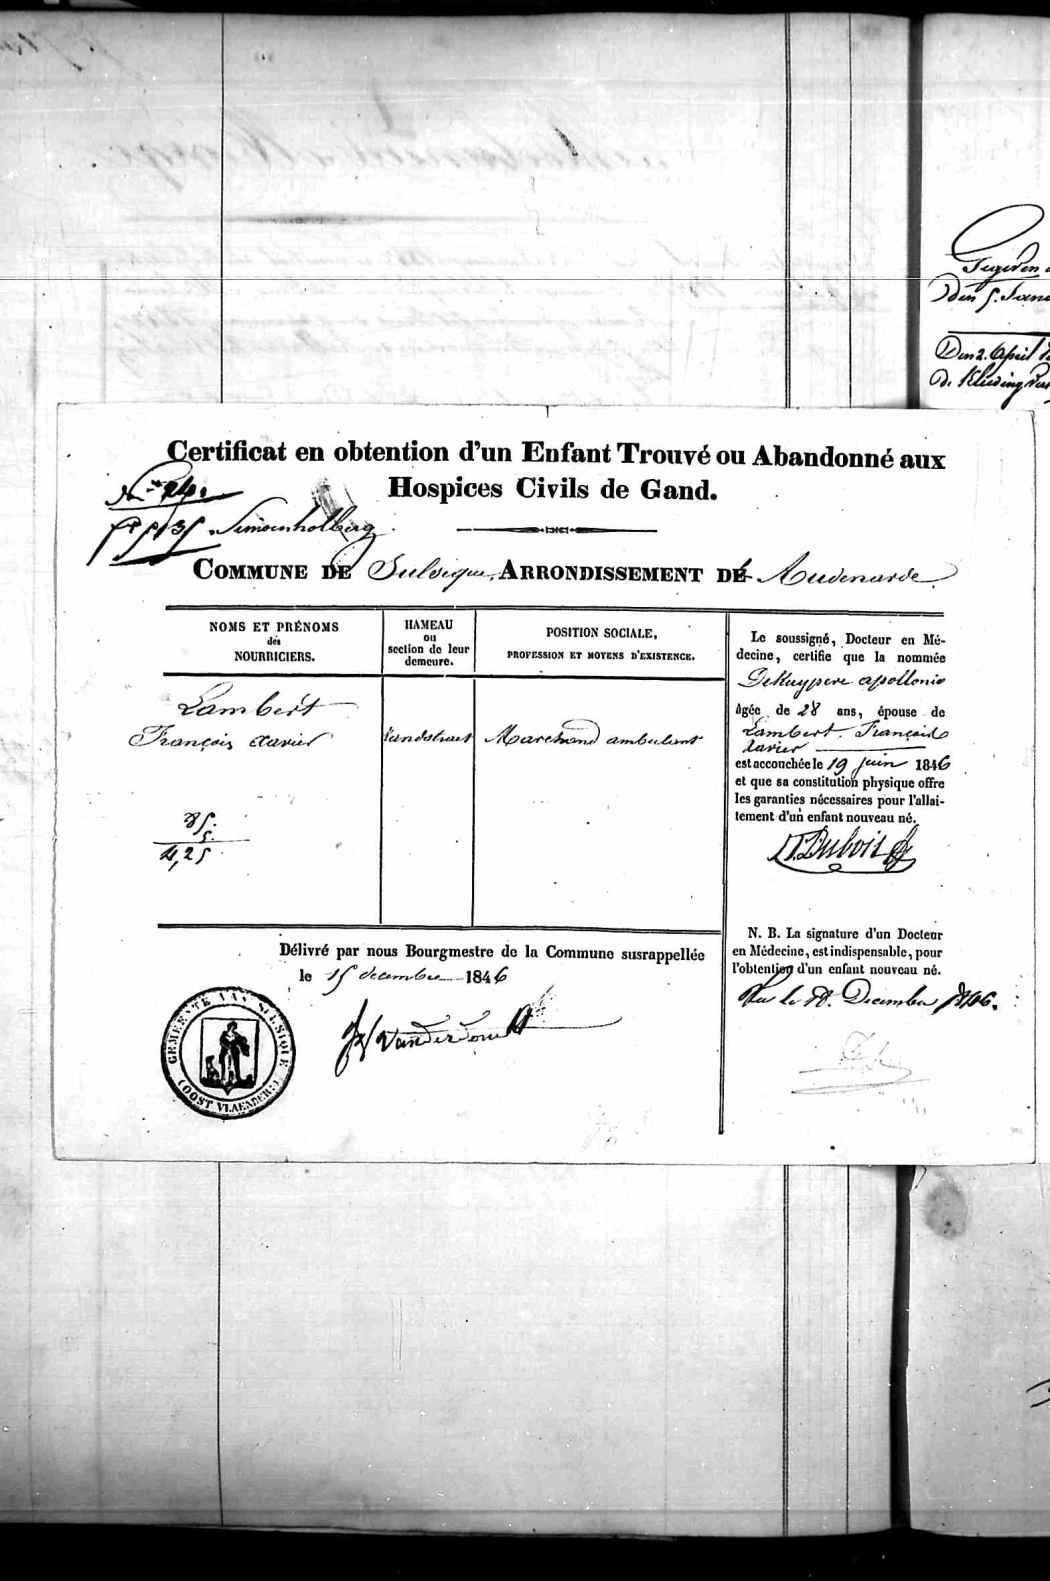 Gegeven
Den 5. Janu
Den 2. April
de Kleeding van
Certificat en obtention d'un Enfant Trouvé ou Abandonné aux
Hospices Civils de Gand.
N.º 24.
Simoenholberg
COMMUNE DE Sulsique, ARRONDISSEMENT DE Audenarde
NOMS ET PRÉNOMS
des
NOURRICIERS.
HAMEAU
ou
section de leur
demeure.
POSITION SOCIALE,
PROFESSION ET MOYENS D'EXISTENCE.
Lambert
François Xavier
Landstraet
Marchand ambulant
85.
5.
4,25
Le soussigné, Docteur en Mé-
decine, certifie que la nommée
DeKuypere apollonie
âgée de 28 ans, épouse de
Lambert François
Xavier
est accouchée le 19 juin 1846
et que sa constitution physique offre
les garanties nécessaires pour l'allai-
tement d'un enfant nouveau né.
Dubois
N. B. La signature d'un Docteur
en Médecine, est indispensable, pour
l'obtention d'un enfant nouveau né.
Vu le 18. Decembre 1846.
Délivré par nous Bourgmestre de la Commune susrappellée
le 15 decembre 1846
GEMEENTE VAN SULSIQUE
(OOST VLAENDER:)